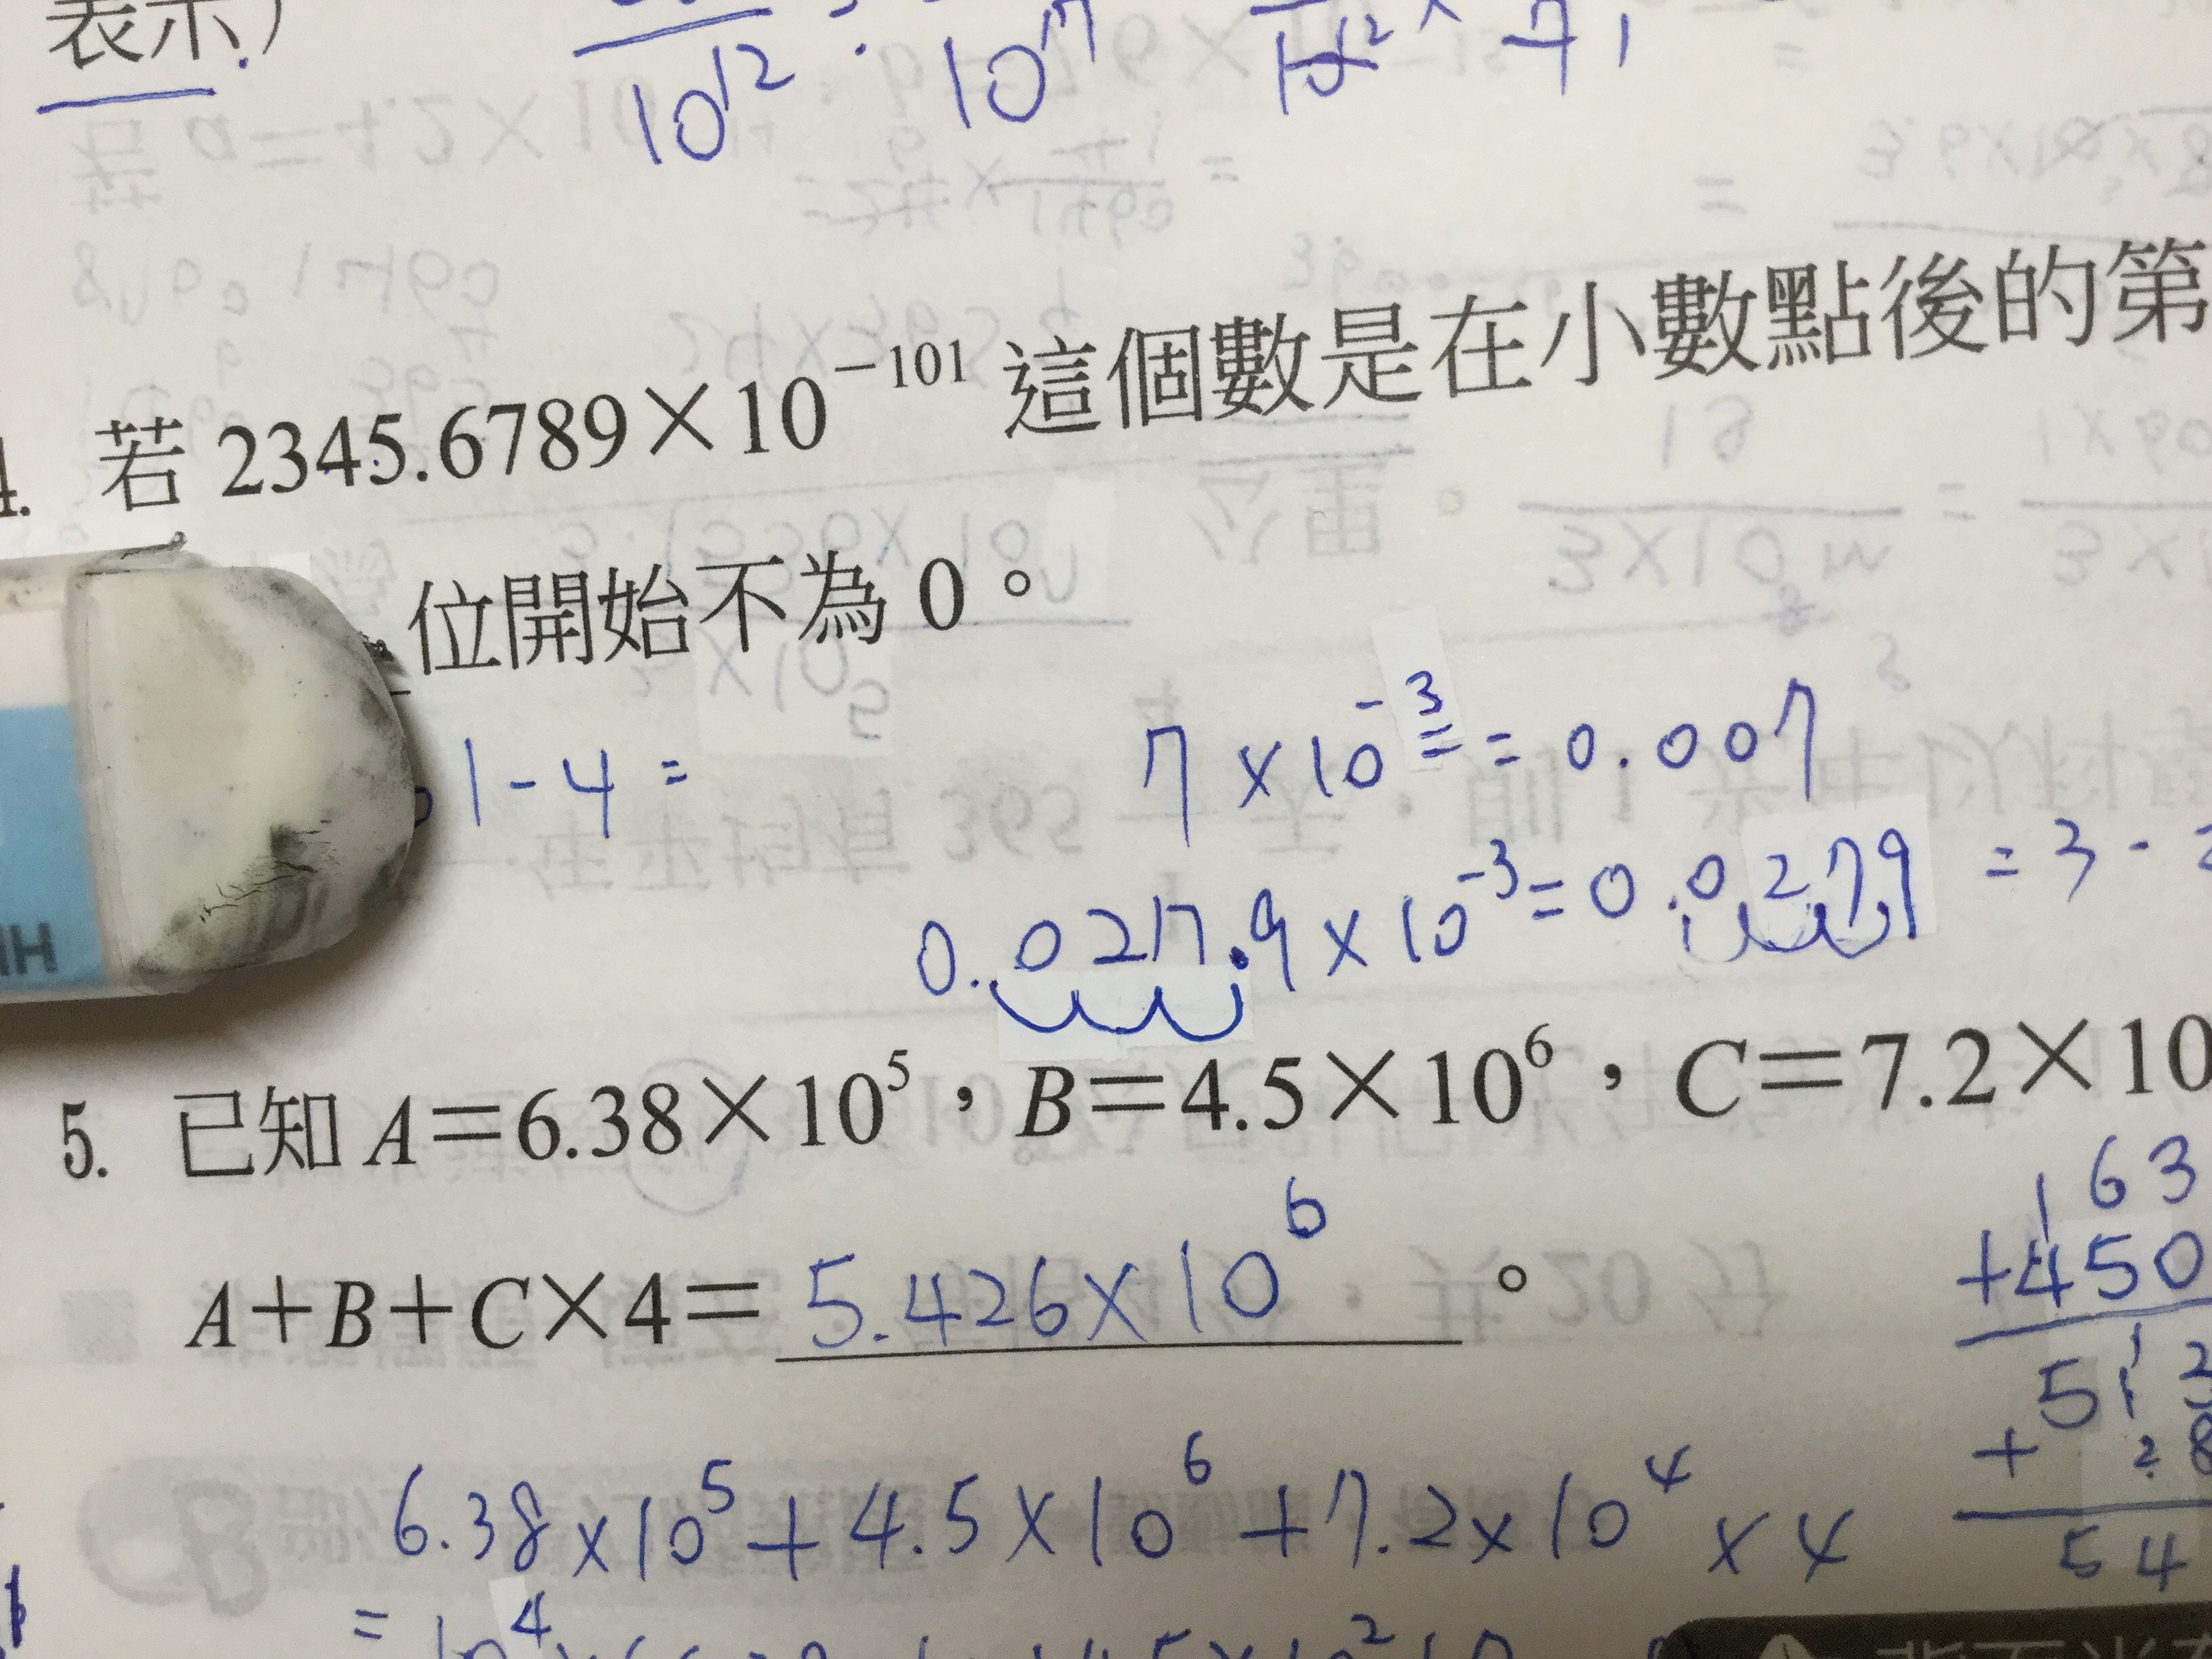 表示)
10¹² 10¹⁷ 10¹² × 7
4. 若 2345.6789×10⁻¹⁰¹ 這個數是在小數點後的第
位開始不為 0。
1-4= 7×10⁻³ = = 0.007
0.0217.9×10⁻³=0.0279 =3-
5. 已知 A=6.38×10⁵，B=4.5×10⁶，C=7.2×10
A+B+C×4= 5.426×10⁶ 。
163
+450
51
+ 28
54
6.38×10⁵+4.5×10⁶+7.2×10⁴×4
=